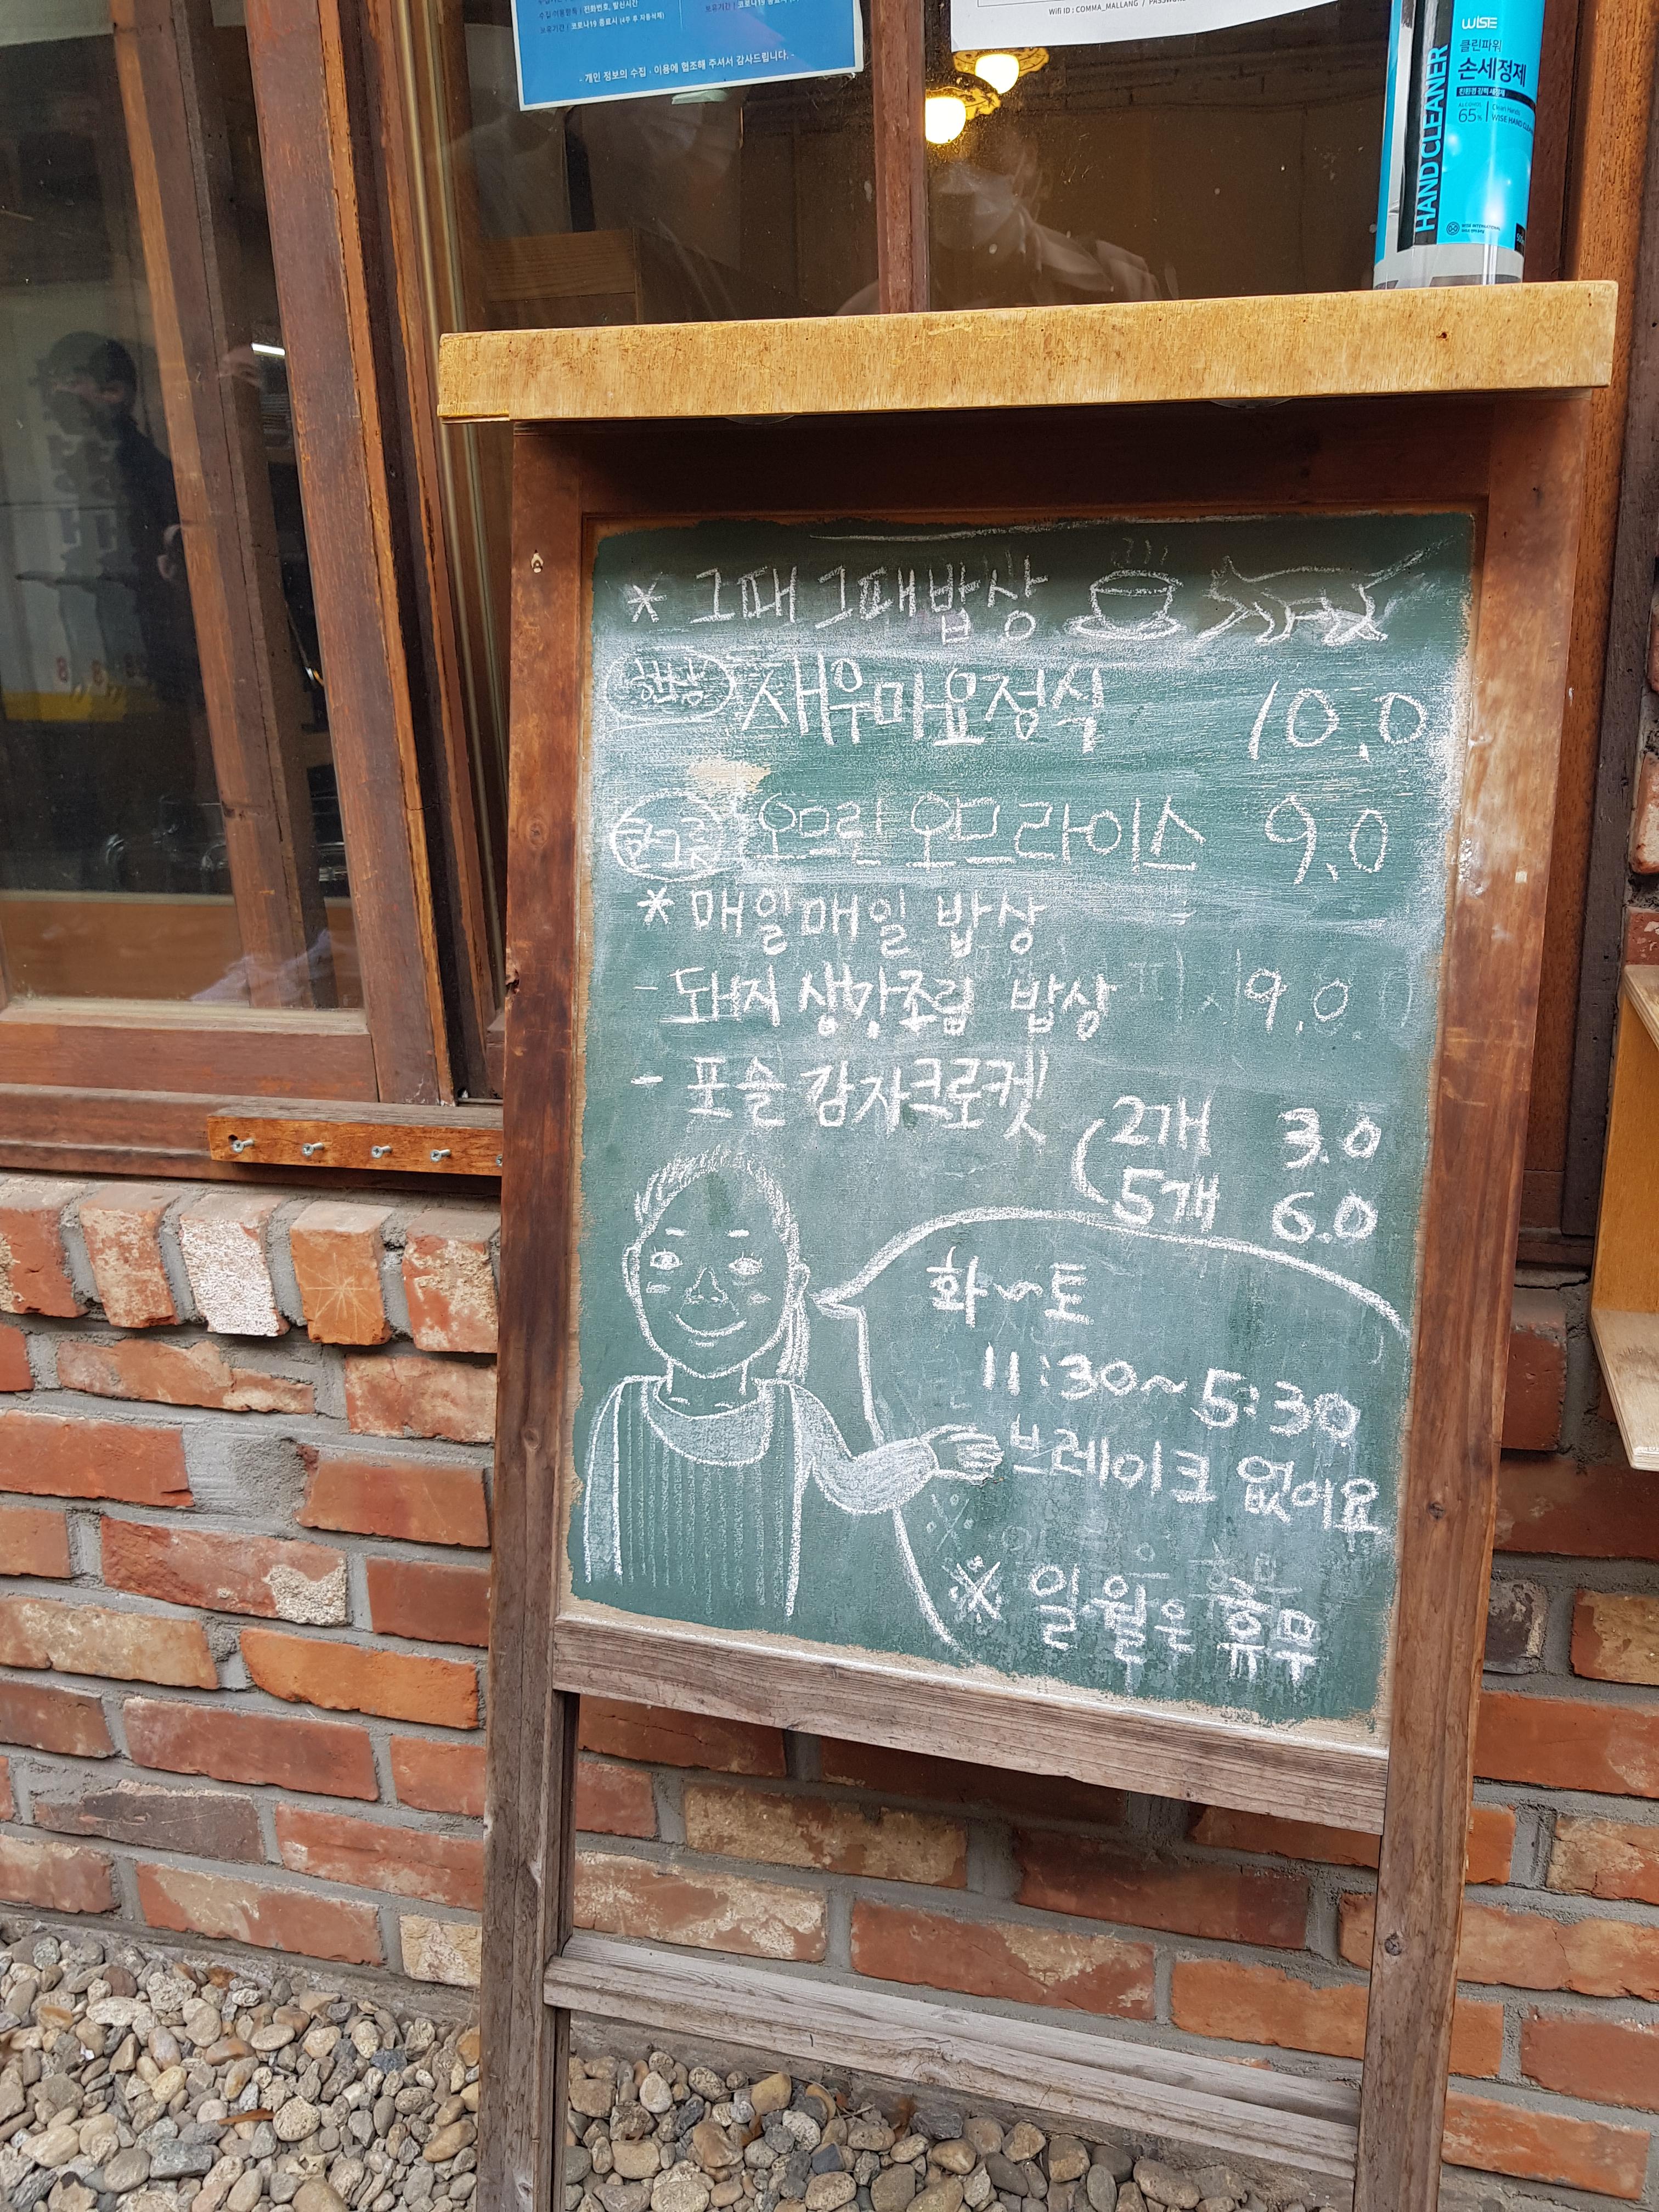 수집·이용항목 | 전화번호, 발신시간
보유기간 | 코로나19 종료시 (4주 후 자동삭제)
- 개인 정보의 수집·이용에 협조해 주셔서 감사드립니다. -
Wifi ID : COMMA_MALLANG / PASSWORD
WISE
클린파워
손세정제
ALCOHOL 65%
Clean Hands
WISE HAND
HAND CLEANER
WISE INTERNATIONAL
* 그때그때밥상
한상 새우마요정식 10.0
한그릇 오므린 오므라이스 9.0
* 매일매일 밥상
- 돼지 생강조림 밥상 9.0
- 포슬 감자크로켓
2개 3.0
5개 6.0
화~토
11:30~5:30
브레이크 없어요
※ 일월은 휴무